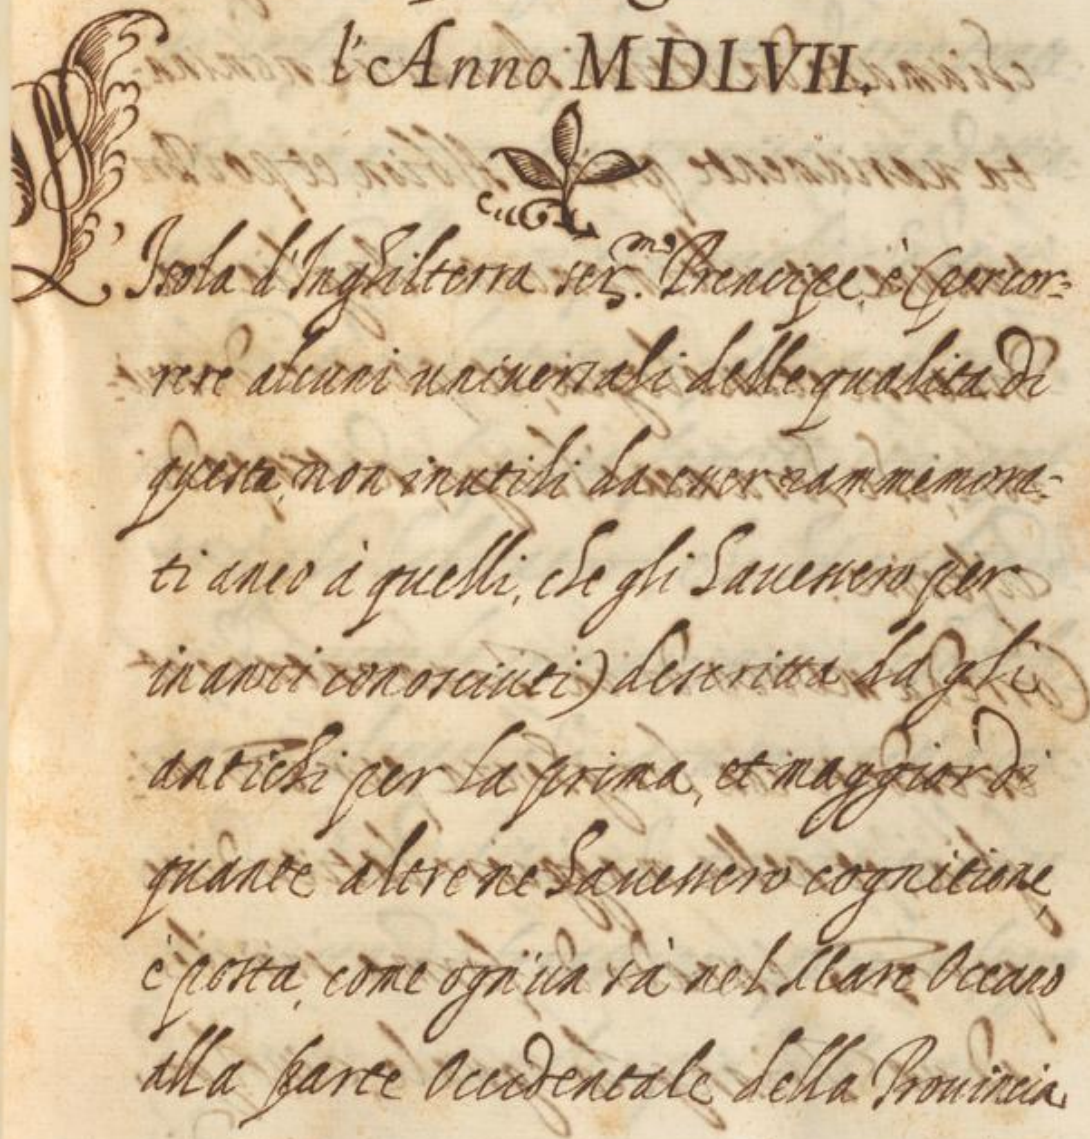 l'Anno MDLVII.
L'Isola d'Inghilterra ser.mo Prencipe, è (per cor-
rere alcuni universali delle qualità di
questa, non inutili da esser rammemora-
ti anco à quelli, che gli havessero per
inanti conosciuti) descritta da gli
antichi per la prima, et maggior di
quante altre ne havessero cognitione,
è posta, come ogn'un sà nel Mare Occeano
alla parte Occidentale della Provincia